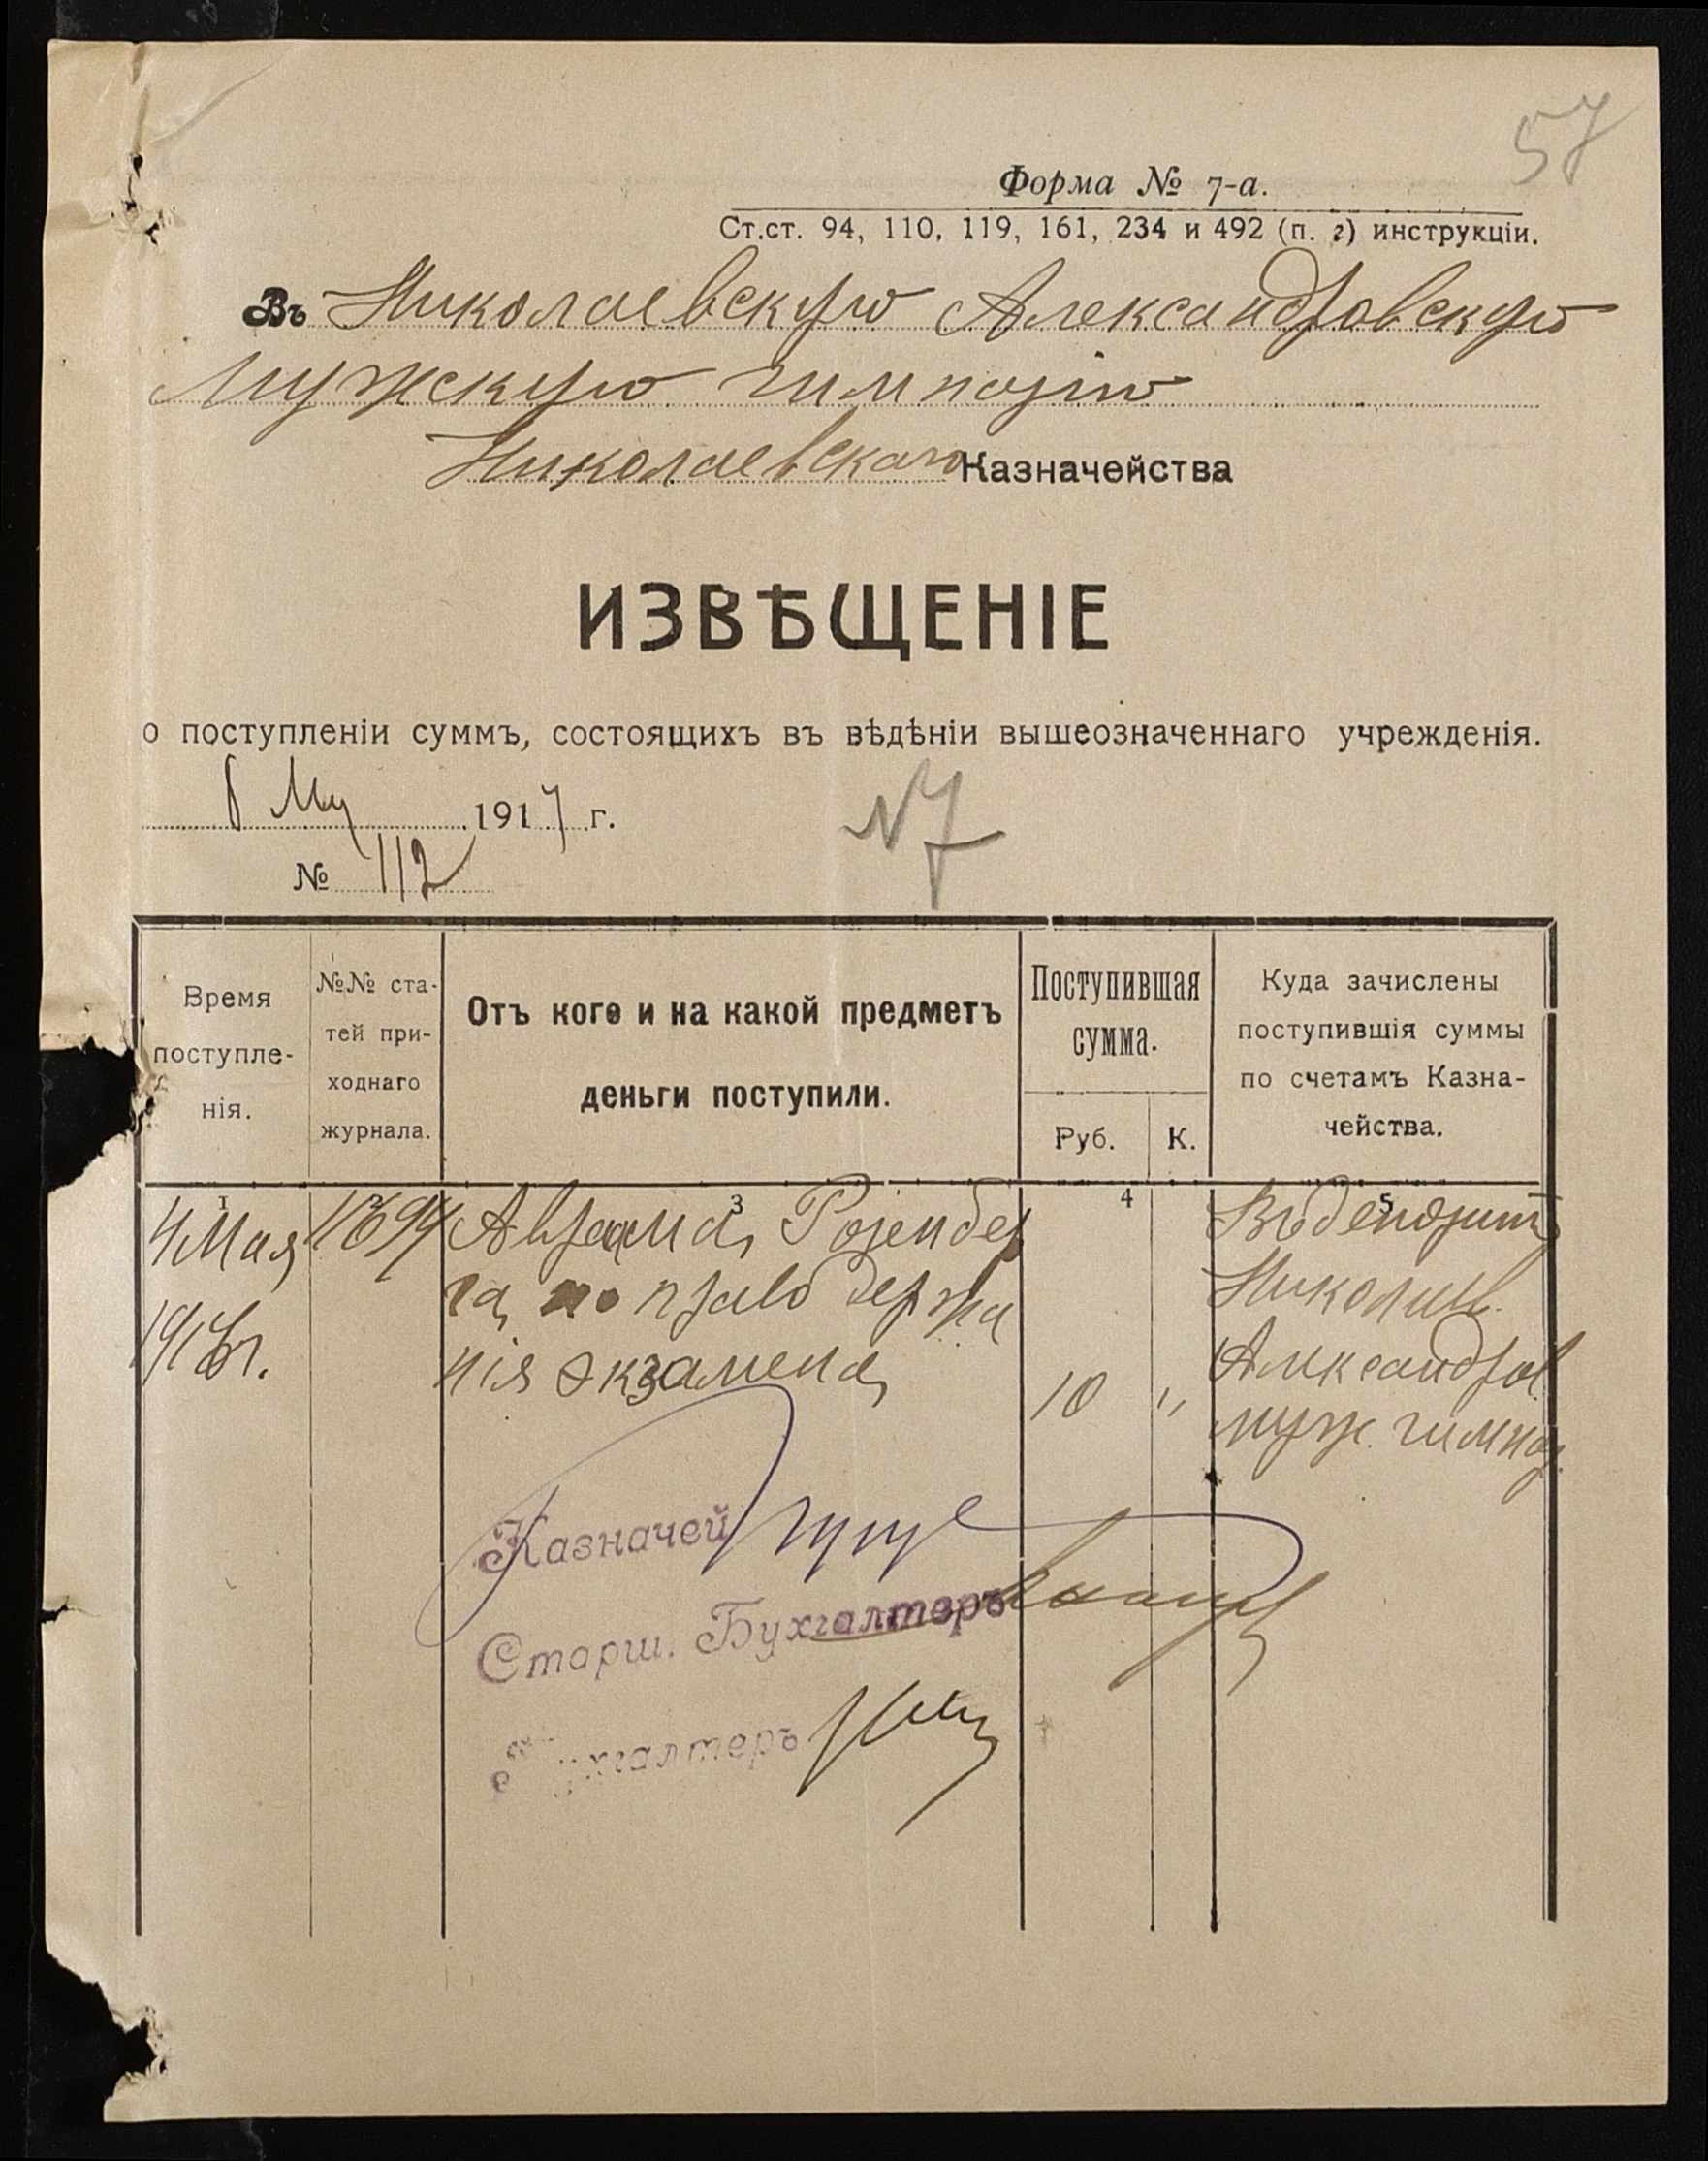 57
Форма № 7-а.
Ст.ст. 94, 110, 119, 161, 234 и 492 (п. г) инструкціи.
Въ Николаевскую Александровскую
Мужскую гимназію
Николаевскаго Казначейства
ИЗВѢЩЕНІЕ
о поступленіи суммъ, состоящихъ въ вѣдѣніи вышеозначеннаго учрежденія.
1917 г.
№ 112
№7
Время поступле-нія.
№№ ста-тей при-ходнаго журнала.
Отъ кого и на какой предметъ деньги поступили.
Поступившая сумма.
Руб. К.
Куда зачислены поступившія суммы по счетамъ Казна-чейства.
1 3 4 5
4 Мая
Авраама Розенбер
га, право держа
нія экзамена,
10 "
Въ депозитъ
Николаев.
Александров.
муж. гимназ.
Казначей
Старш. Бухгалтеръ
Бухгалтеръ